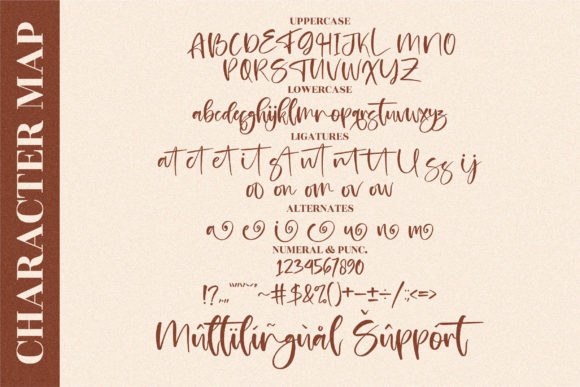 CHARACTER MAP
UPPERCASE
ABCDEFGHIJKL MNO
PQRSTUVWXYZ
LOWERCASE
abcdefghijklmnopqrstuvwxyz
LIGATURES
at et it st ut nt tt ll ss ij
oo on om ov ow
ALTERNATES
a e i c u n m
NUMERAL & PUNC.
1234567890
!?.,~#$&%()+-±÷/:;<=>
Mûltïlíñgùål Šûppört